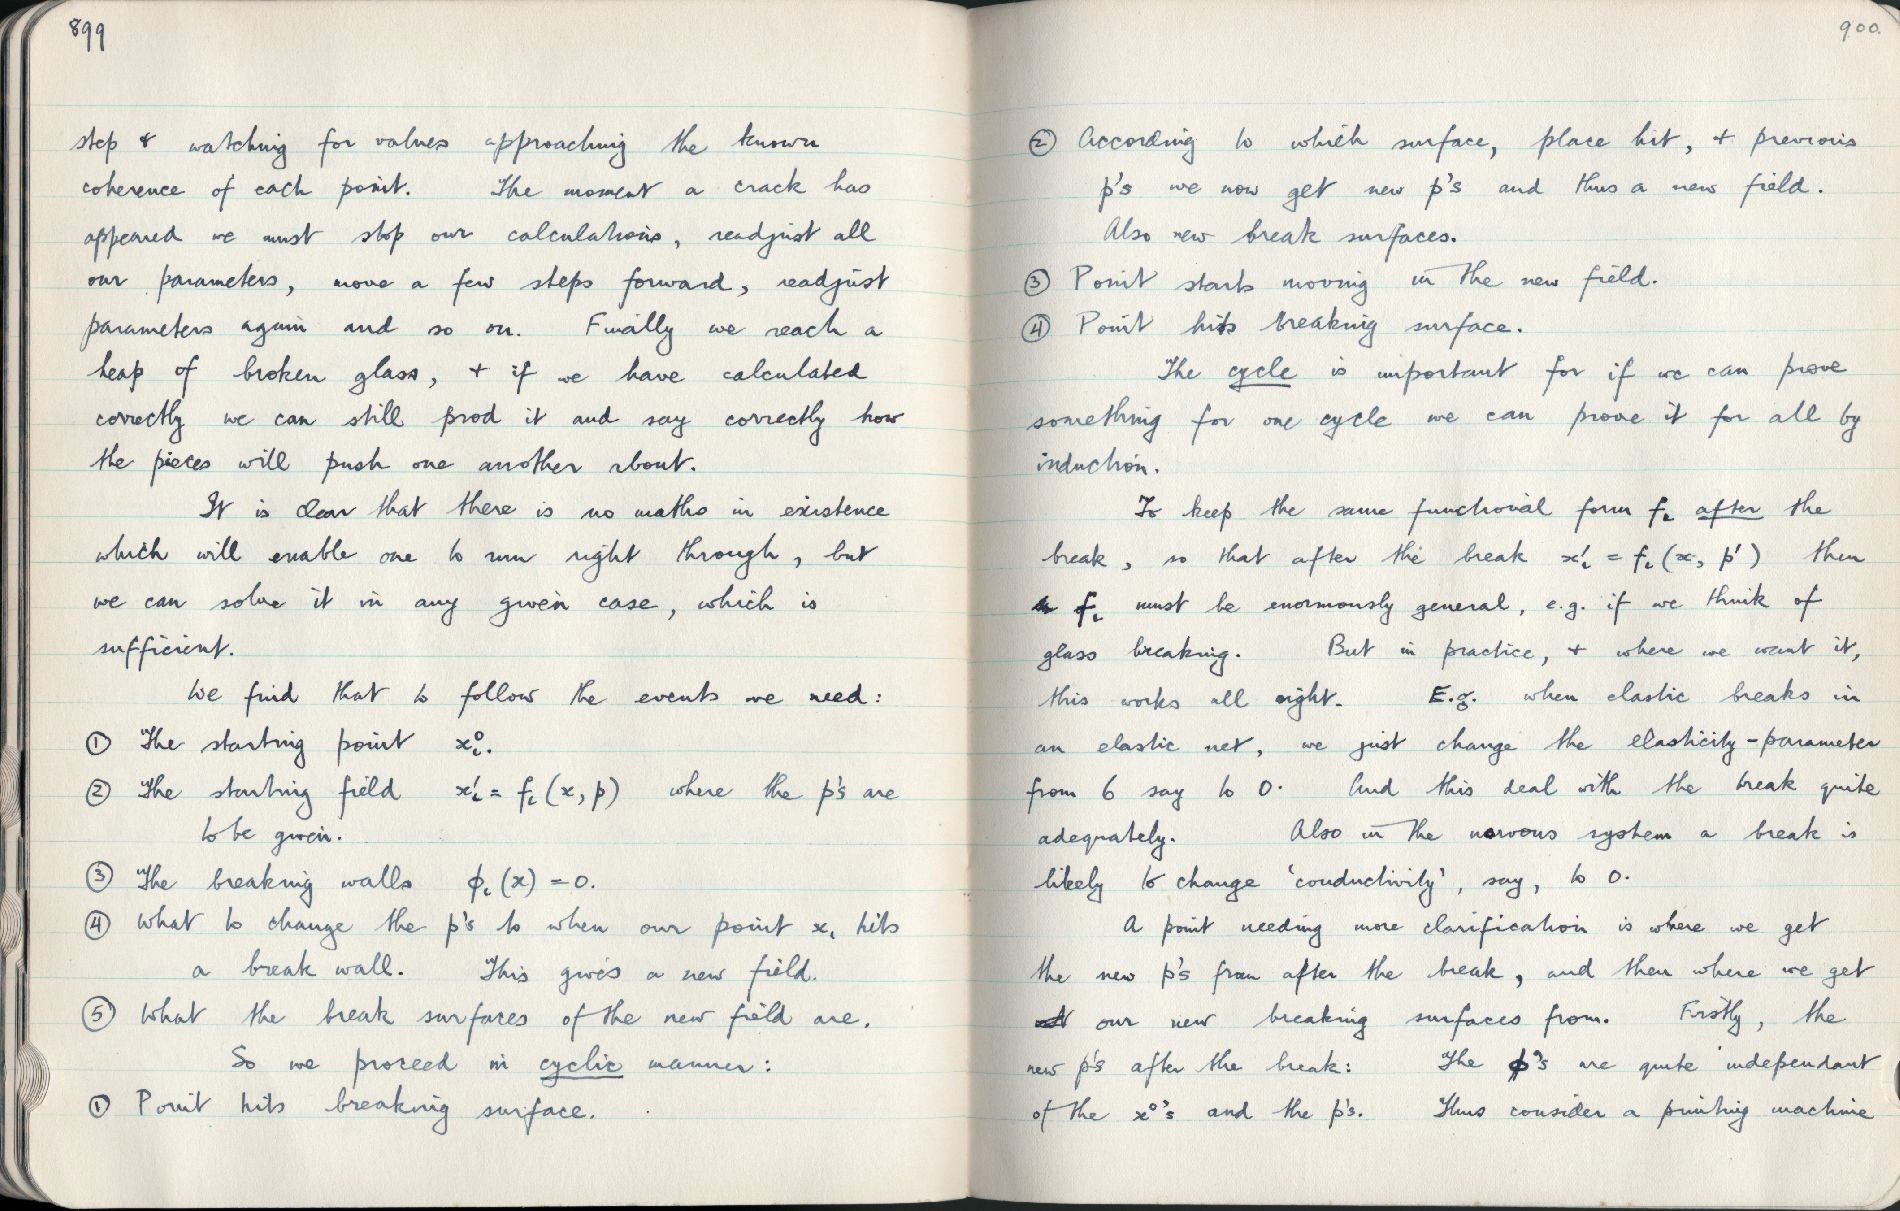 899
step & watching for values approaching the known
coherence of each point. The moment a crack has
appeared we must stop our calculations, readjust all
our parameters, move a few steps forward, readjust
parameters again and so on. Finally we reach a
heap of broken glass, + if we have calculated
correctly we can still prod it and say correctly how
the pieces will push one another about.
It is clear that there is no maths in existence
which will enable one to run right through, but
we can solve it in any given case, which is
sufficient.
We find that to follow the events we need:
① The starting point xᵢ⁰.
② The starting field xᵢ' = fᵢ(x, p) where the p's are
to be given.
③ The breaking walls ϕᵢ(x) = 0.
④ What to change the p's to when our point xᵢ hits
a break wall. This gives a new field.
⑤ What the break surfaces of the new field are.
So we proceed in cyclic manner:
① Point hits breaking surface.
900.
② According to which surface, place hit, + previous
p's we now get new p's and thus a new field.
Also new break surfaces.
③ Point starts moving in the new field.
④ Point hits breaking surface.
The cycle is important for if we can prove
something for one cycle we can prove it for all by
induction.
To keep the same functional form fᵢ after the
break, so that after the break xᵢ' = fᵢ(x, p') then
fᵢ must be enormously general, e.g. if we think of
glass breaking. But in practice, + where we want it,
this works all right. E.g. when elastic breaks in
an elastic net, we just change the elasticity-parameter
from 6 say to 0. And this deal with the break quite
adequately. Also in the nervous system a break is
likely to change 'conductivity', say, to 0.
A point needing more clarification is where we get
the new p's from after the break, and then where we get
our new breaking surfaces from. Firstly, the
new p's after the break: The ϕ's are quite independant
of the x⁰'s and the p's. Thus consider a printing machine